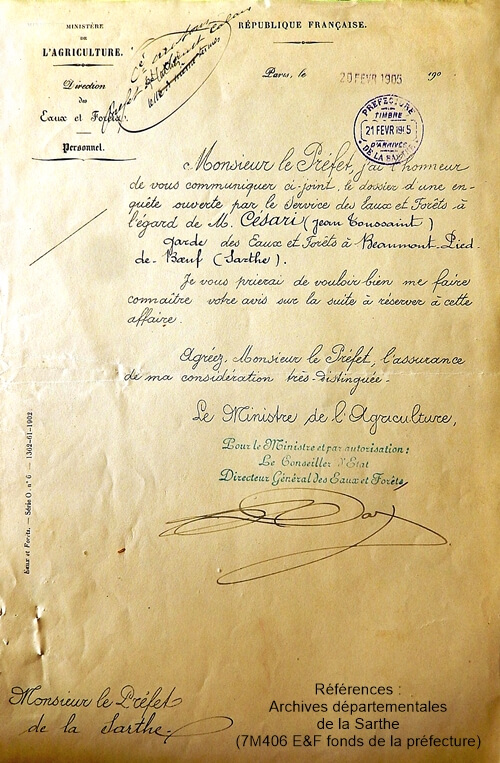 MINISTÈRE
DE
L'AGRICULTURE.
Direction
des
Eaux et Forêts.
Personnel.
RÉPUBLIQUE FRANÇAISE.
Paris, le 20 FEVR 1905 190
PREFECTURE
TIMBRE
21 FEVR 1905
D'ARRIVÉE
DE LA SARTHE
Monsieur le Préfet, j'ai l'honneur
de vous communiquer ci-joint, le dossier d'une en-
quête ouverte par le Service des Eaux et Forêts à
l'égard de M. Césari (Jean Toussaint)
garde des Eaux et Forêts à Beaumont-Pied-
de-Bœuf (Sarthe).
Je vous prierai de vouloir bien me faire
connaître votre avis sur la suite à réserver à cette
affaire.
Agréez, Monsieur le Préfet, l'assurance
de ma considération très-distinguée.
Le Ministre de l'Agriculture,
Pour le Ministre et par autorisation:
Le Conseiller d'Etat
Directeur Général des Eaux et Forêts,
Eaux et Forêts. — Série O n° 6 — 1362-61-1902
Monsieur le Préfet
de la Sarthe.
Références :
Archives départementales
de la Sarthe
(7M406 E&F fonds de la préfecture)